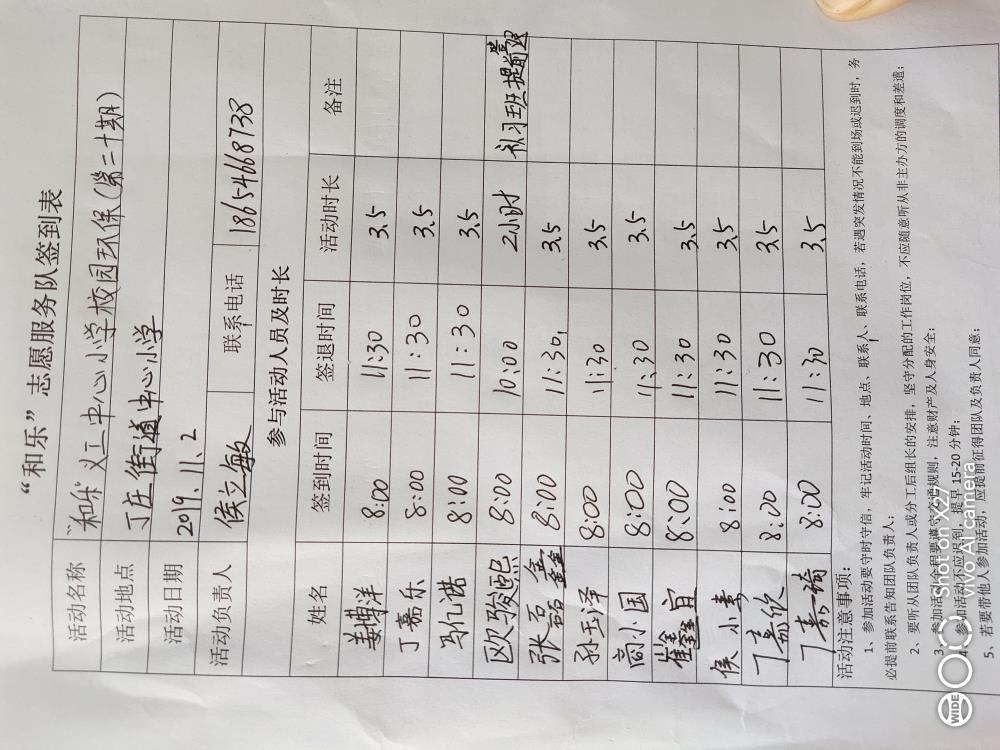 “和乐”志愿服务队签到表
活动名称 “和乐”义工中心小学校园环保(第二十期)
活动地点 丁庄街道中心小学
活动日期 2019.11.2
活动负责人 侯立敏 联系电话 18654668738
参与活动人员及时长
姓名 签到时间 签退时间 活动时长 备注
姜博洋 8:00 11:30 3.5
丁嘉乐 8:00 11:30 3.5
马亿诺 8:00 11:30 3.5
欧骏熙 8:00 10:00 2小时 补习班提前退
张磊鑫 8:00 11:30 3.5
孙玉泽 8:00 11:30 3.5
高小国 8:00 11:30 3.5
崔鑫宜 8:00 11:30 3.5
侯小贵 8:00 11:30 3.5
丁嘉欣 8:00 11:30 3.5
丁嘉琦 8:00 11:30 3.5
活动注意事项:
1、参加活动要守时守信,牢记活动时间、地点、联系人、联系电话,若遇突发情况不能到场或迟到时,务
必提前联系告知团队负责人;
2、要听从团队负责人或分工后组长的安排,坚守分配的工作岗位,不应随意听从非主办方的调度和差遣;
3、参加活动全程要遵守交通规则,注意财产及人身安全;
4、参加活动不应迟到,提早15-20分钟;
5、若要带他人参加活动,应提前征得团队及负责人同意;
WIDE
Shot on X27
vivo AI camera